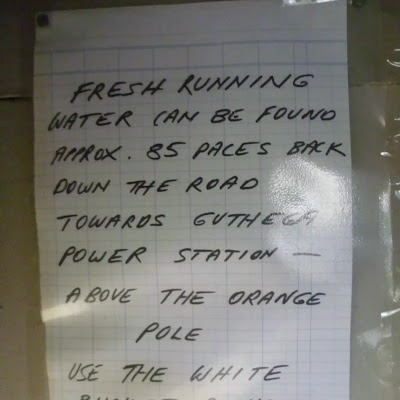 FRESH RUNNING
WATER CAN BE FOUND
APPROX. 85 PACES BACK
DOWN THE ROAD
TOWARDS GUTHEGA
POWER STATION —
ABOVE THE ORANGE
POLE
USE THE WHITE